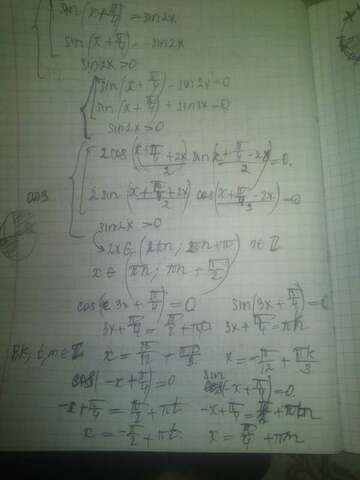 sin(x+π/4)=sin2x
sin(x+π/4)=-sin2x
sin2x>0
sin(x+π/4)-sin2x=0
sin(x+π/4)+sin2x=0
sin2x>0
2cos((x+π/4+2x)/2) sin((x+π/4-2x)/2)=0.
2sin((x+π/4+2x)/2) cos((x+π/4-2x)/2)=0
sin2x>0
2x∈(2πn; 2πn+π) n∈Z
x∈(πn; πn+π/2)
cos(3x+π/4)=0 sin(3x+π/4)=0
3x+π/4=π/2+πp 3x+π/4=πk
p,k,t,m∈Z x=π/12+πp/3 x=-π/12+πk/3
cos(-x+π/4)=0 sin(-x+π/4)=0
-x+π/4=π/2+πt -x+π/4=πm
x=-π/2+πt x=π/4+πm